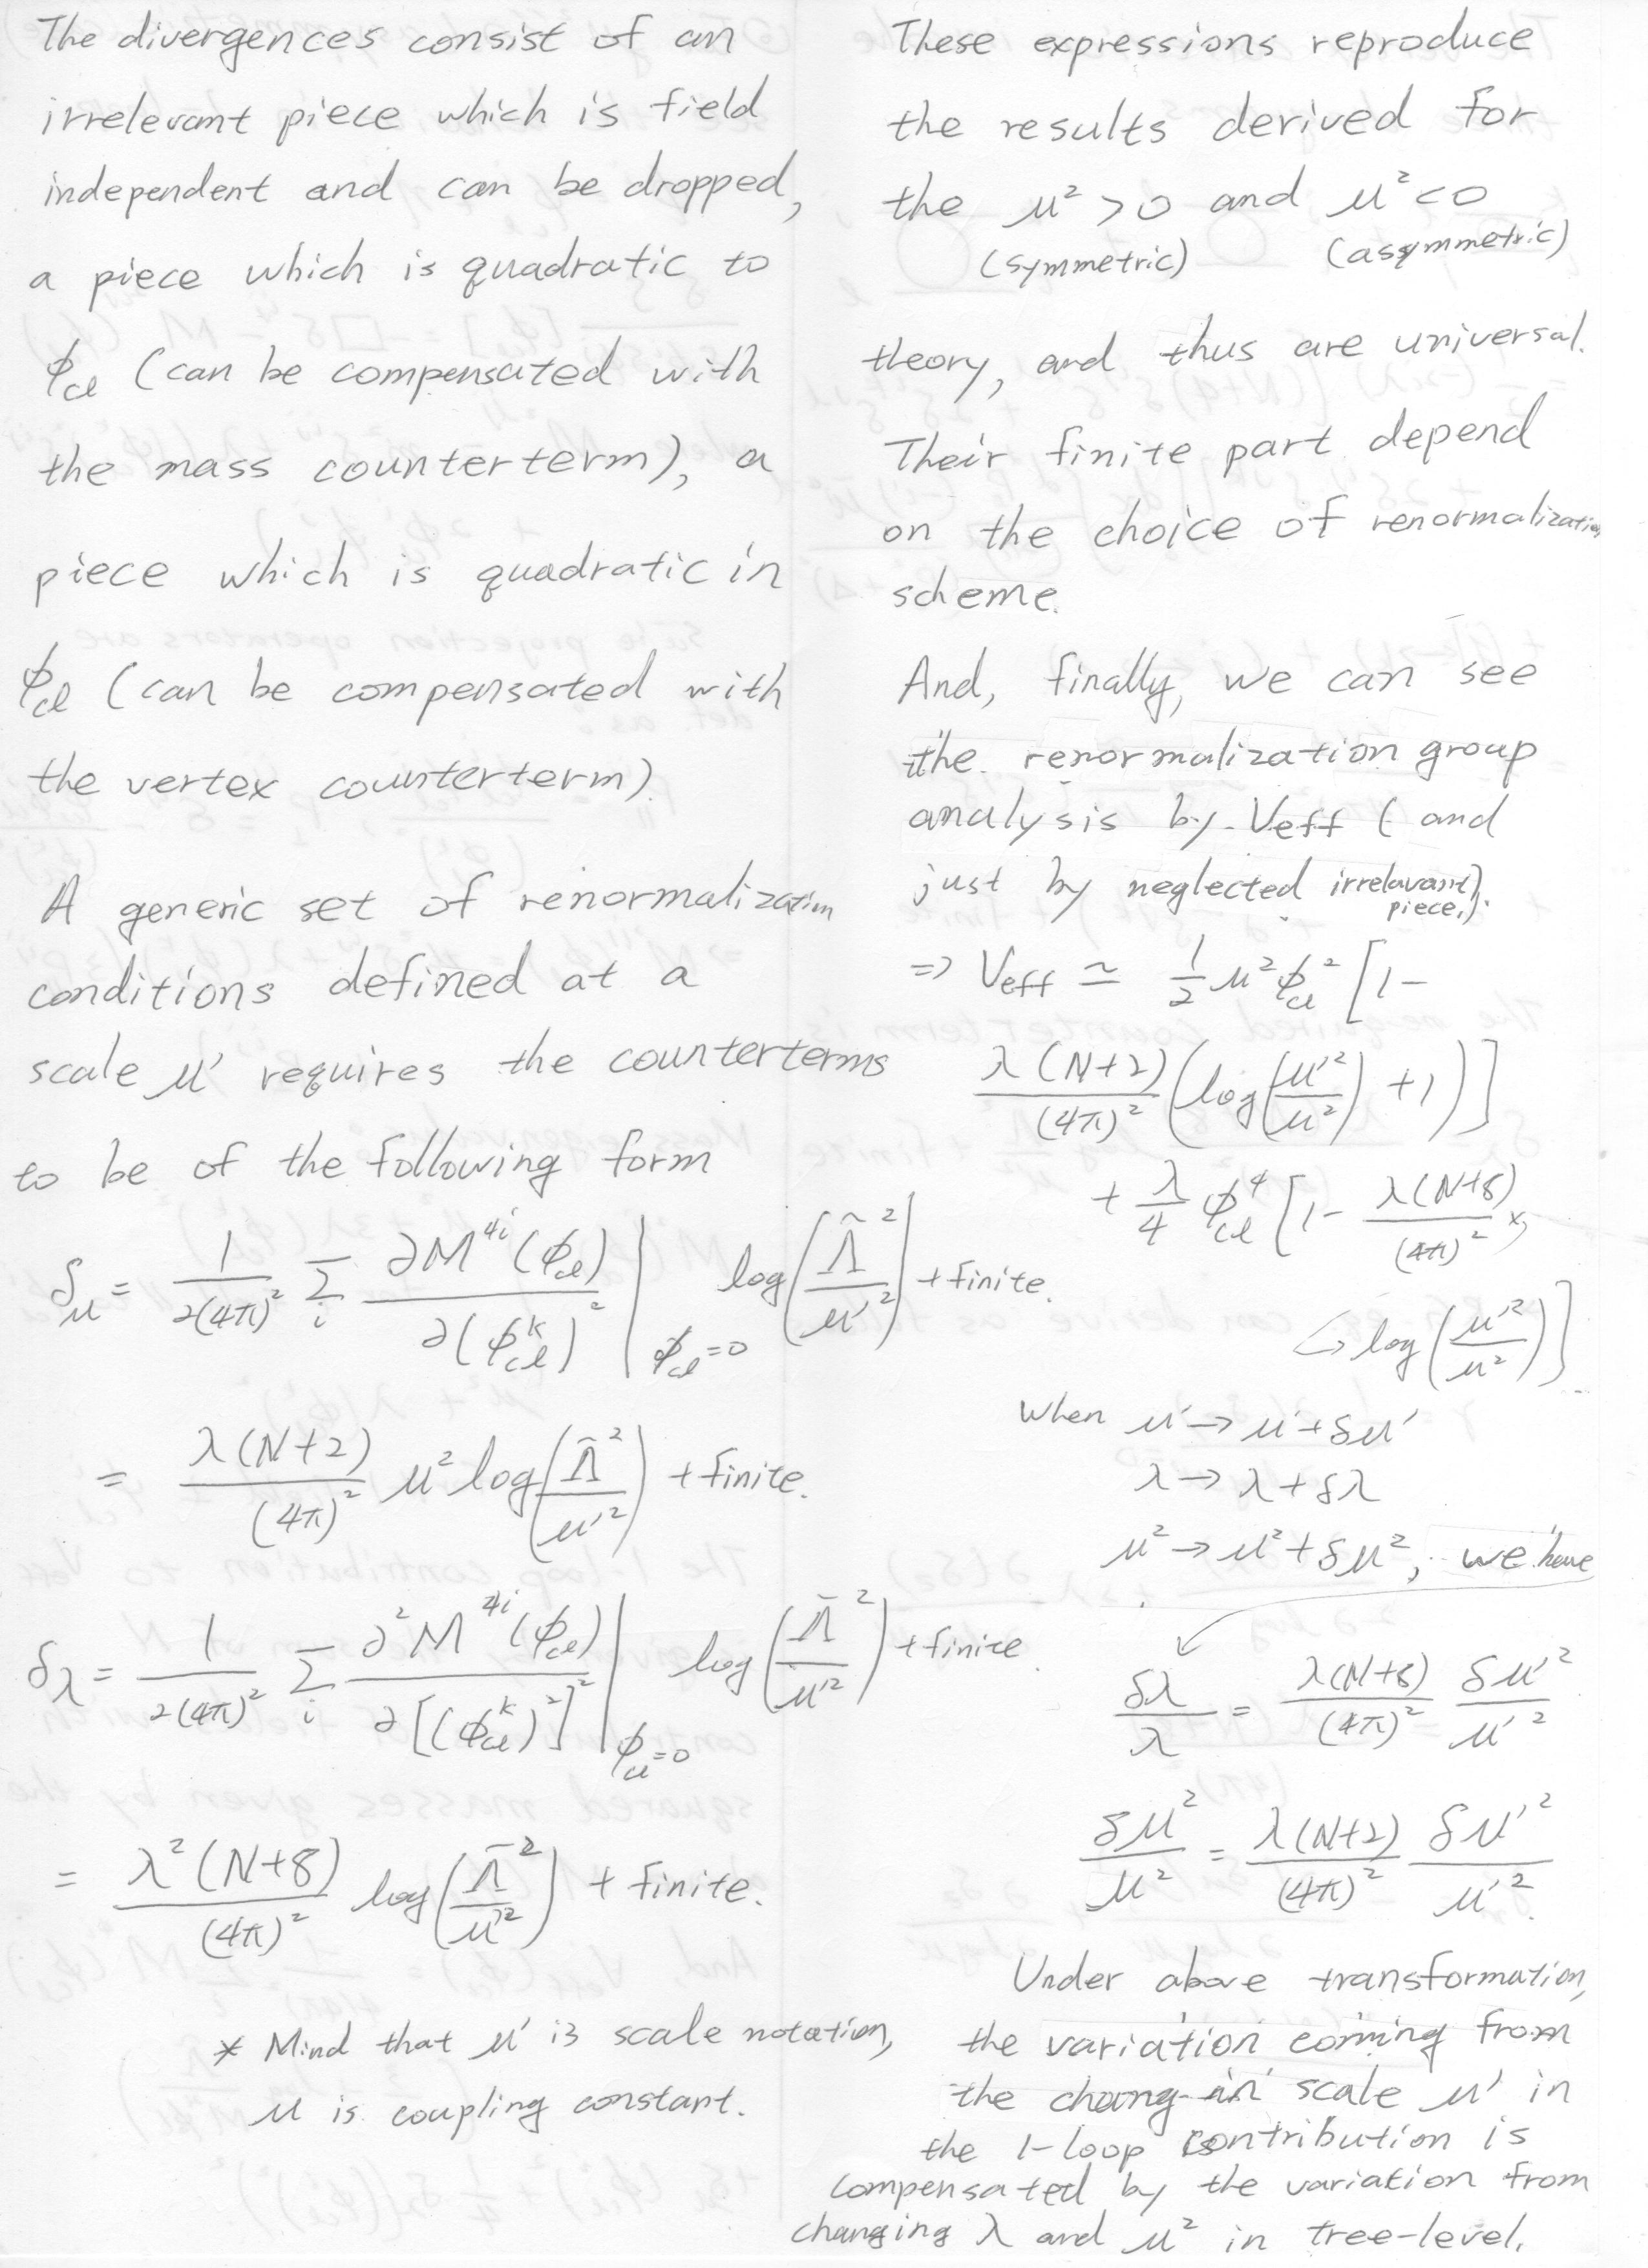 The divergences consist of an
irrelevant piece which is field
independent and can be dropped,
a piece which is quadratic to
ϕ_cl (can be compensated with
the mass counterterm), a
piece which is quadratic in
ϕ_cl (can be compensated with
the vertex counterterm).
A generic set of renormalization
conditions defined at a
scale μ' requires the counterterms
to be of the following form
δ_μ = 1/(2(4π)²) Σ_i ∂M^{4i}(ϕ_cl)/∂(ϕ^k_cl)² |_{ϕ_cl=0} log(Λ̃²/μ'²) + finite.
= λ(N+2)/(4π)² μ² log(Λ̃²/μ'²) + finite.
δ_λ = 1/(2(4π)²) Σ_i ∂²M^{4i}(ϕ_cl)/∂[(ϕ^k_cl)²]² |_{ϕ_cl=0} log(Λ̄²/μ'²) + finite.
= λ²(N+8)/(4π)² log(Λ̄²/μ'²) + finite.
* Mind that μ' is scale notation,
μ is coupling constant.
These expressions reproduce
the results derived for
the μ² > 0 and μ² < 0
(symmetric) (assymmetric)
theory, and thus are universal.
Their finite part depend
on the choice of renormalization
scheme.
And, finally, we can see
the renormalization group
analysis by Veff (and
just by neglected irrelavant
piece.).
⇒ Veff ≃ 1/2 μ²ϕ_cl² [1 −
λ(N+2)/(4π)² (log(μ'²/μ²) + 1)]
+ λ/4 ϕ_cl⁴ [1 − λ(N+8)/(4π)² ×
↪ log(μ'²/μ²)]
when μ' → μ' + δμ'
λ → λ + δλ
μ² → μ² + δμ², we have
δλ/λ = λ(N+8)/(4π)² δμ'²/μ'²
δμ²/μ² = λ(N+2)/(4π)² δμ'²/μ'².
Under above transformation,
the variation coming from
the chang in scale μ' in
the 1-loop contribution is
compensated by the variation from
changing λ and μ² in tree-level.